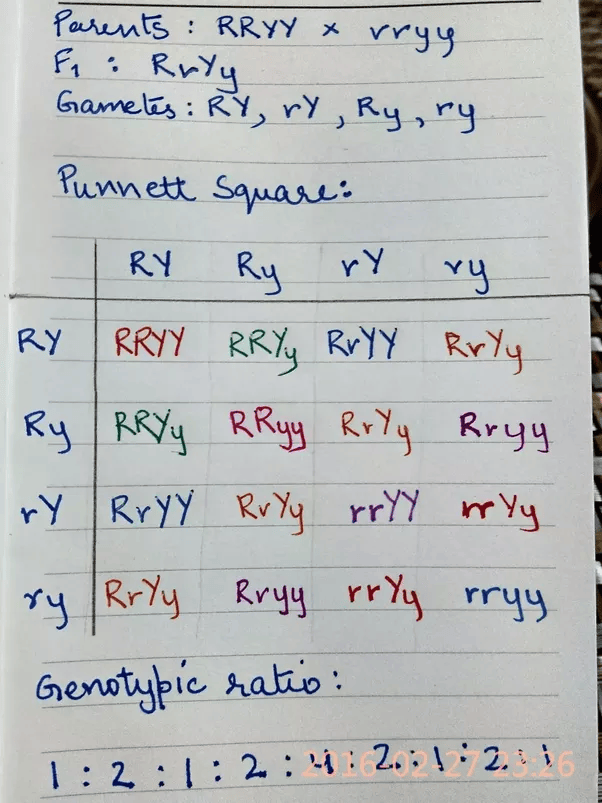 Parents : RRYY × rryy
F₁ : RrYy
Gametes : RY, rY, Ry, ry
Punnett Square:
RY Ry rY ry
RY RRYY RRYy RrYY RrYy
Ry RRYy RRyy RrYy Rryy
rY RrYY RrYy rrYY rrYy
ry RrYy Rryy rrYy rryy
Genotypic ratio :
1 : 2 : 1 : 2 : 4 : 2 : 1 : 2 : 1
2016-02-27 23:26